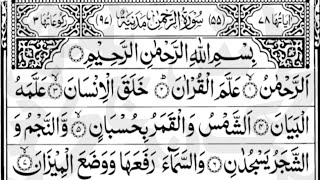 اٰیاتها ٧٨ (٥٥) سُوْرَةُ الرَّحْمٰنِ مَدَنِيَّةٌ (٩٧) رکوعاتها ٣
بِسْمِ اللّٰهِ الرَّحْمٰنِ الرَّحِيْمِ
اَلرَّحْمٰنُ ۙ۝١ عَلَّمَ الْقُرْاٰنَ ؕ۝٢ خَلَقَ الْاِنْسَانَ ۙ۝٣ عَلَّمَهُ
الْبَيَانَ ۝٤ اَلشَّمْسُ وَ الْقَمَرُ بِحُسْبَانٍ ۪۝٥ وَّ النَّجْمُ وَ
الشَّجَرُ يَسْجُدٰنِ ۝٦ وَ السَّمَآءَ رَفَعَهَا وَ وَضَعَ الْمِيْزَانَ ۙ۝٧